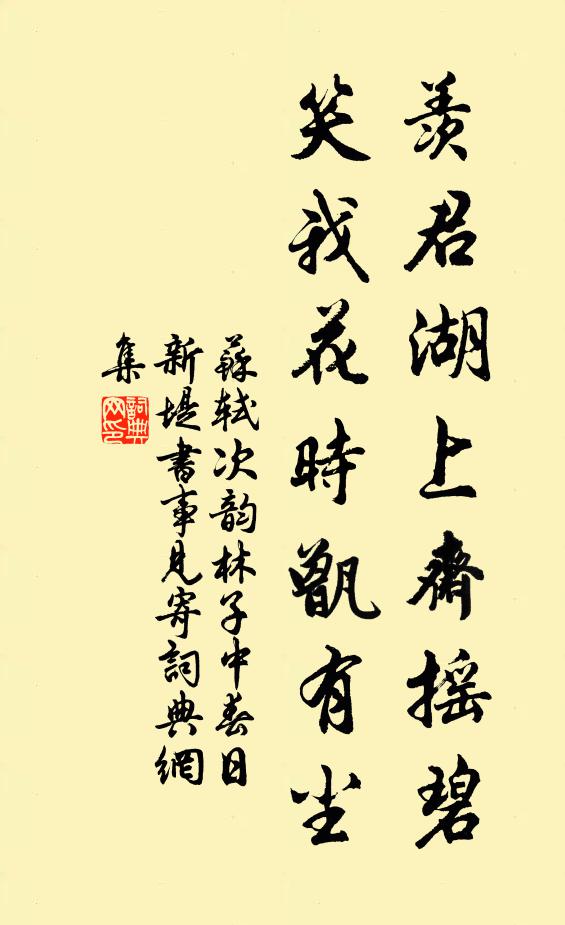 羨君湖上齋搖碧
笑我花時甑有尘
蘇軾次韵林子中春日
新堤書事見寄詞典網
集
詞典
网印